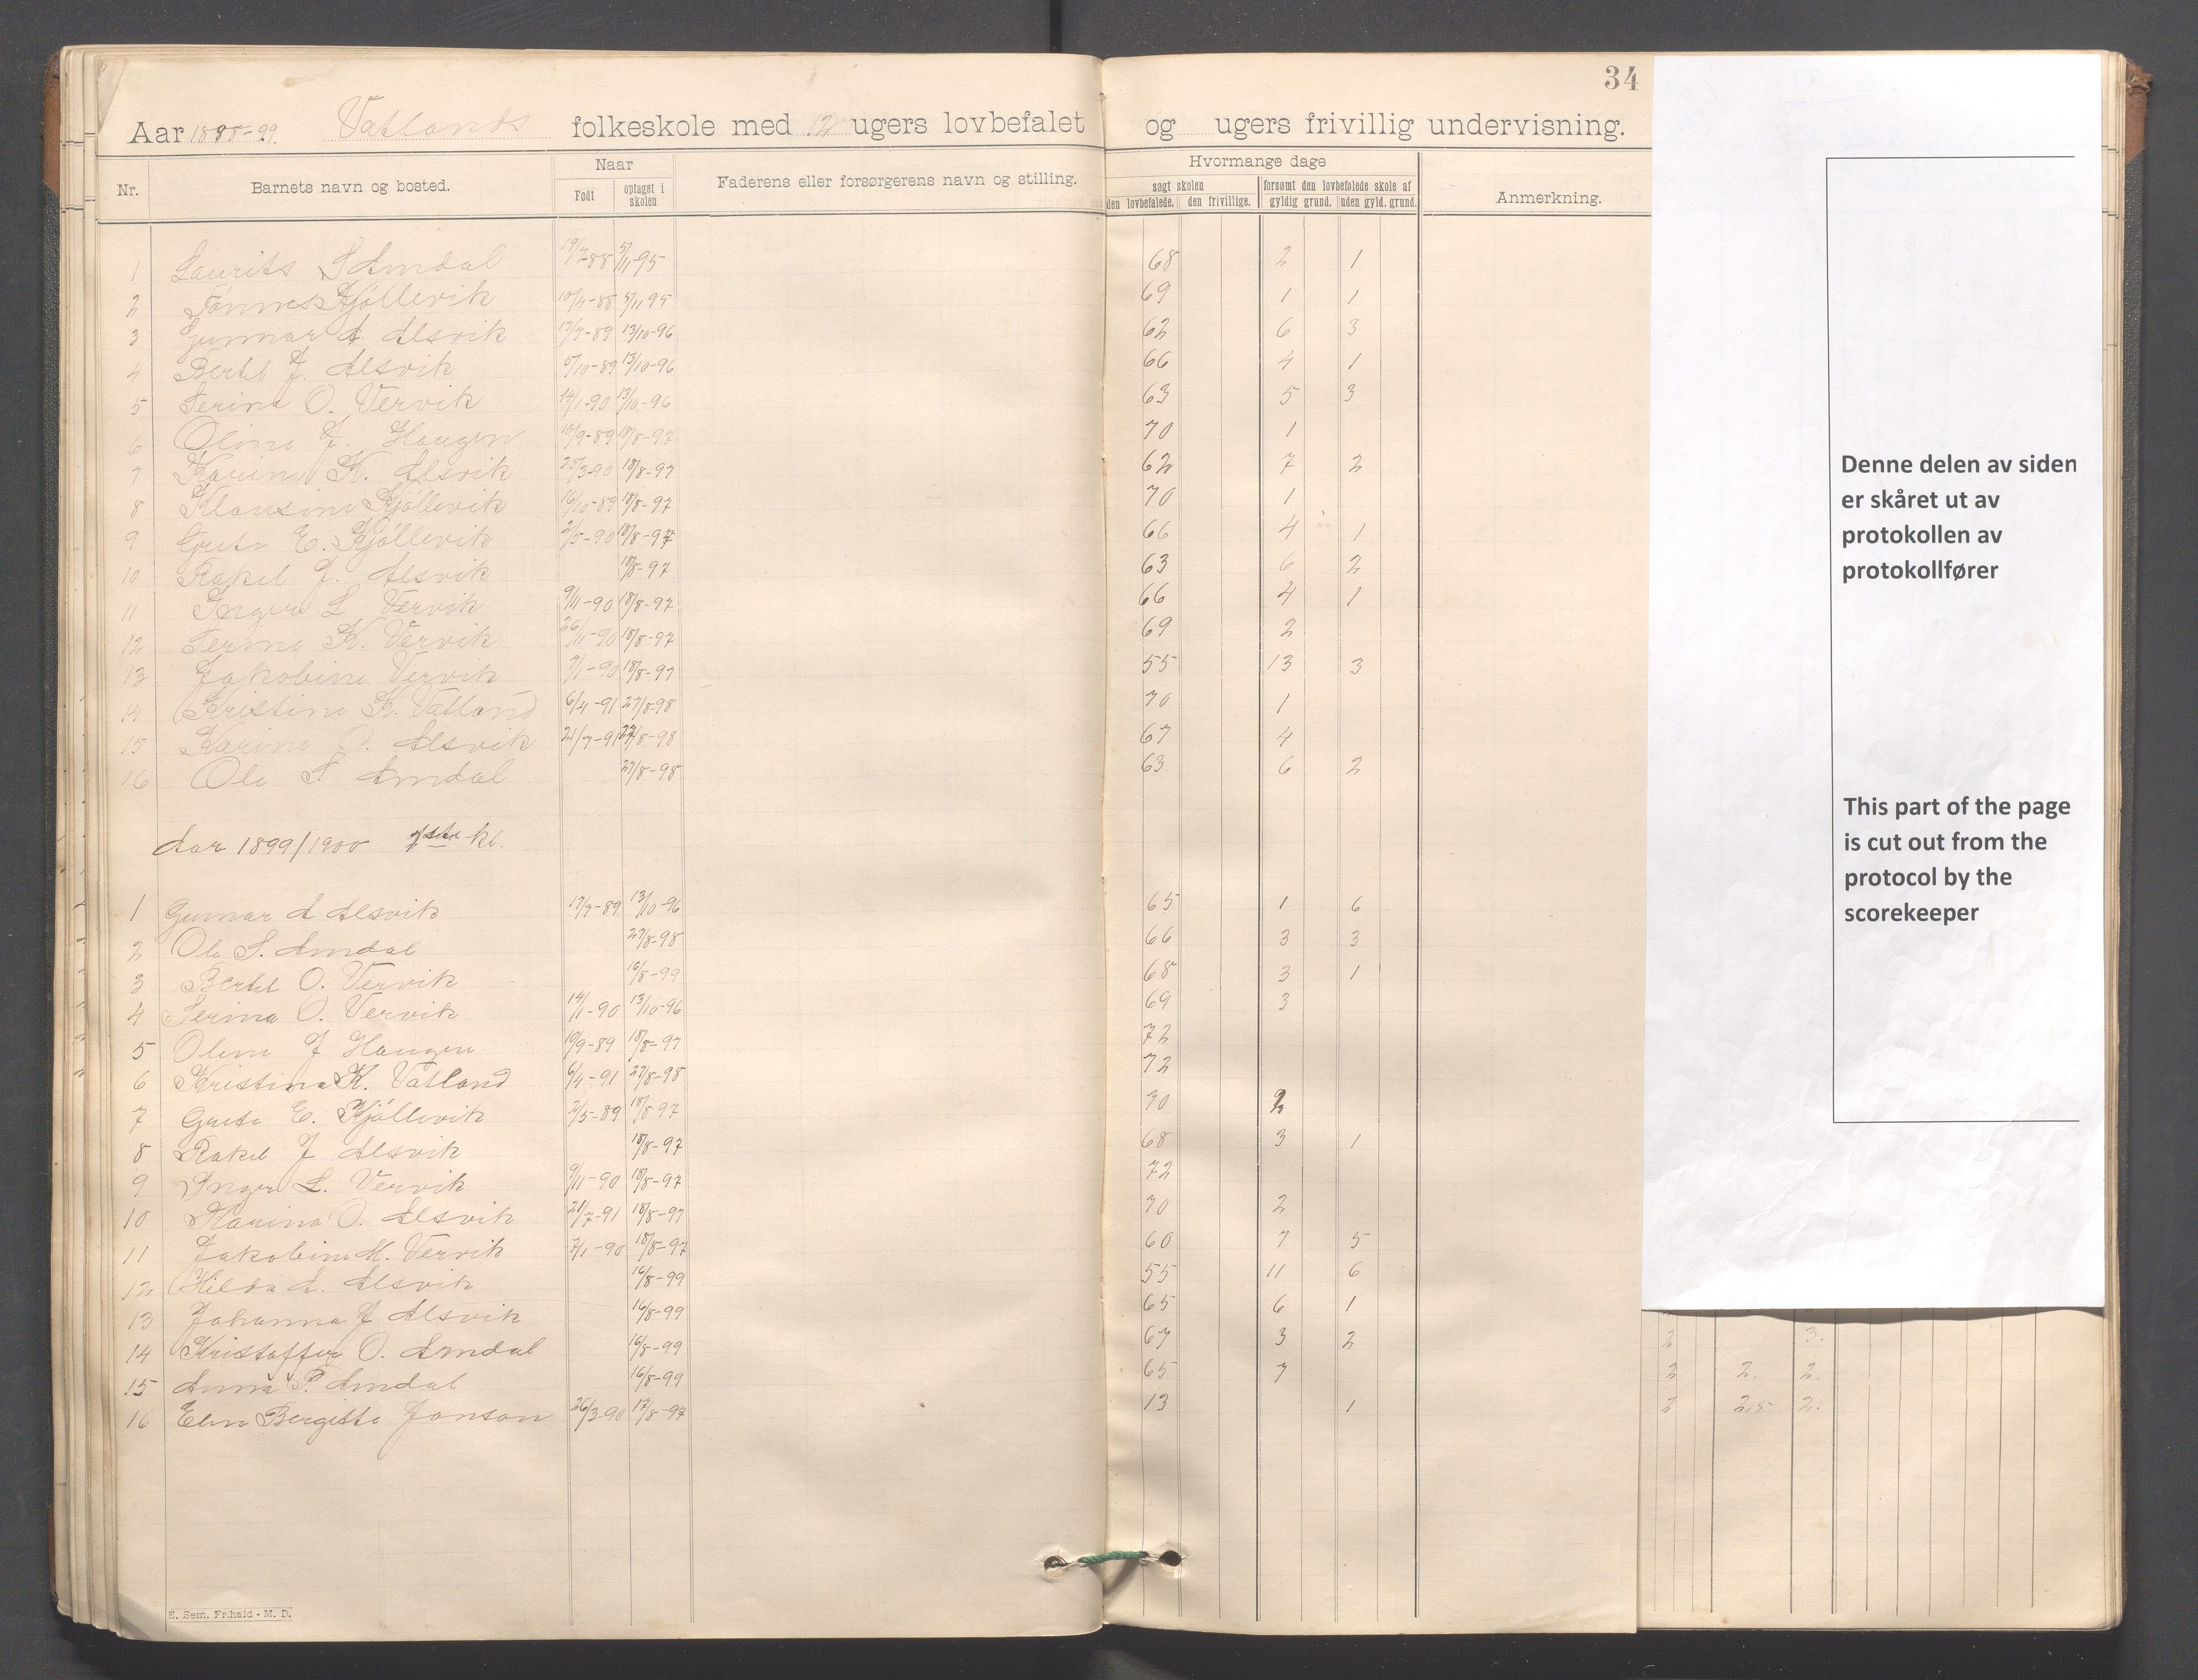 34
Aar 1898-99. Vatlands folkeskole med 12 ugers lovbefalet og ugers frivillig undervisning.
Nr. Barnets navn og bosted. Naar Født optaget i skolen Faderens eller forsørgerens navn og stilling. Hvormange dage søgt skolen den lovbefalede. den frivillige. forsømt den lovbefalede skole af gyldig grund. uden gyld. grund. Anmerkning.
1 Laurits S Amdal 19/7-88 5/11-95 68 2 1
2 Tønnes Kjøllevik 10/4-88 5/11 95 69 1 1
3 Gunnar A. Alsvik 17/7-89 13/10-96 62 6 3
4 Bertel J. Alsvik 5/10-89 13/10-96 66 4 1
5 Serina O. Vervik 14/1-90 13/10-96 63 5 3
6 Oline J. Haugen 10/9-89 18/8-97 70 1
7 Karine K. Alsvik 25/3-90 18/8-97 62 7 2
8 Klausine Kjøllevik 16/10-89 18/8-97 70 1
9 Grete E. Kjøllevik 2/5-90 18/8-97 66 4 1
10 Rakel J. Alsvik 18/8-97 63 6 2
11 Inger L Vervik 9/11-90 18/8-97 66 4 1
12 Serina K. Vervik 26/11-90 18/8-97 69 2
13 Jakobine Vervik 7/1-90 18/8-97 55 13 3
14 Kristine K. Vatland 6/4-91 27/8-98 70 1
15 Karina O. Alsvik 21/7-91 27/8-98 67 4
16 Ole S. Amdal 27/8-98 63 6 2
Aar 1899/1900 1ste kl.
1 Gunnar A Alsvik 17/7-89 13/10-96 65 1 6
2 Ole S. Amdal 27/8-98 66 3 3
3 Bertel O. Vervik 16/8-99 68 3 1
4 Serina O. Vervik 14/1-90 13/10-96 69 3
5 Oline J Haugen 10/9-89 18/8-97 72
6 Kristina K. Vatland 6/4-91 27/8-98 72
7 Grete E. Kjøllevik 2/5-89 18/8 97 70 2
8 Rakel J Alsvik 18/8-97 68 3 1
9 Inger L. Vervik 9/11-90 18/8-97 72
10 Karina O. Alsvik 21/7-91 18/8-97 70 2
11 Jakobine M. Vervik 7/1-90 18/8-97 60 7 5
12 Hilda A. Alsvik 16/8-99 55 11 6
13 Johanna J Alsvik 16/8-99 65 6 1
14 Kristoffer O. Amdal 16/8-99 67 3 2
15 Anna P. Amdal 16/8-99 65 7
16 Elen Bergitte Jonson 26/3-90 17/8-97 13 1
E. Sem, Fr.hald - M. D.
Denne delen av siden
er skåret ut av
protokollen av
protokollfører
This part of the page
is cut out from the
protocol by the
scorekeeper
2 3.
2 2. 2.
2 2,5 2.